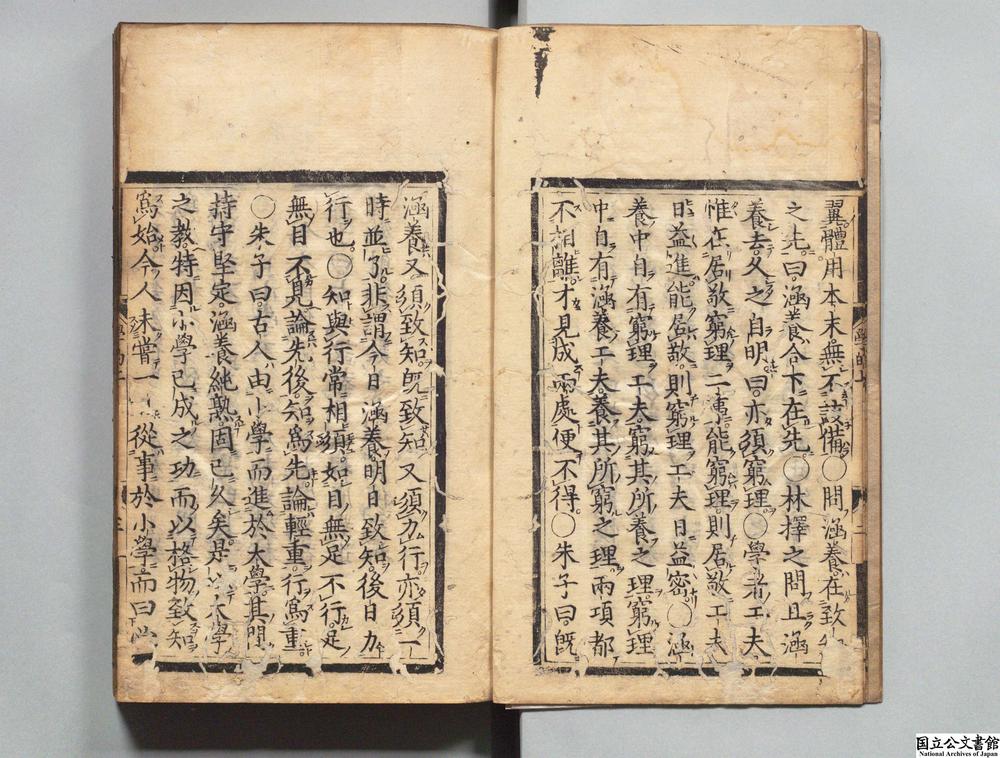 翼體用本末無不該備○問涵養在致
之先曰涵養合下在先○林擇之問且涵
養去久之自明曰亦須窮理○學者工夫
惟在居敬窮理二事能窮理則居敬工夫
日益進能居敬則窮理工夫日益密○涵
養中自有窮理工夫窮其所養之理窮理
中自有涵養工夫養其所窮之理兩項都
不相離才見成兩處便不得○朱子曰旣
涵養又須致知旣致知又須力行亦須一
時並了非謂今日涵養明日致知後日力
行也○知與行常相須如目無足不行足
無目不見論先後知爲先論輕重行爲重
○朱子曰古人由小學而進於大學其間
持守堅定涵養純熟固已久矣是大學
之教特因小學已成之功而以格物致知
爲始今人未嘗一從事於小學而曰必
國立公文書館
National Archives of Japan